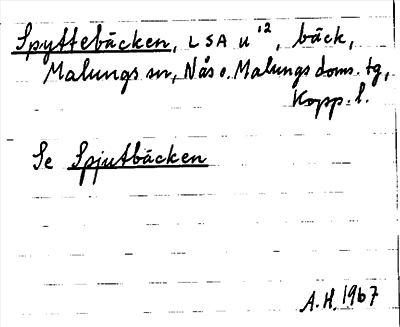 Spyttebäcken, LSA u '12, bäck,
Malungs sn, Nås o. Malungs doms. tg,
Kopp. l.
Se Spjutbäcken
A.H. 1967